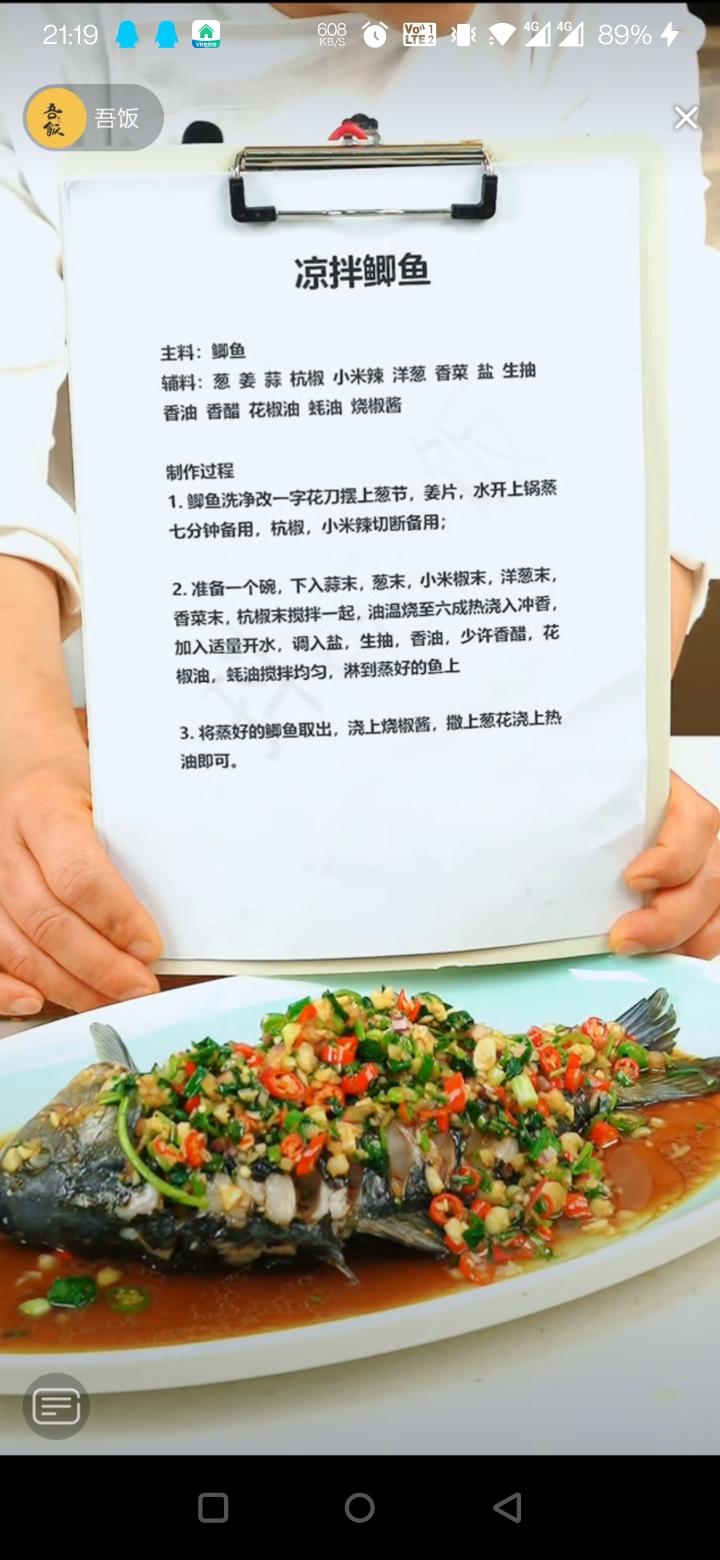 21:19
608
KB/S
Vo 1
LTE 2
4G
4G
89%
吾饭
吾饭
凉拌鲫鱼
主料：鲫鱼
辅料：葱 姜 蒜 杭椒 小米辣 洋葱 香菜 盐 生抽
香油 香醋 花椒油 蚝油 烧椒酱
制作过程
1. 鲫鱼洗净改一字花刀摆上葱节，姜片，水开上锅蒸
七分钟备用，杭椒，小米辣切断备用；
2. 准备一个碗，下入蒜末，葱末，小米椒末，洋葱末，
香菜末，杭椒末搅拌一起，油温烧至六成热浇入冲香，
加入适量开水，调入盐，生抽，香油，少许香醋，花
椒油，蚝油搅拌均匀，淋到蒸好的鱼上
3. 将蒸好的鲫鱼取出，浇上烧椒酱，撒上葱花浇上热
油即可。